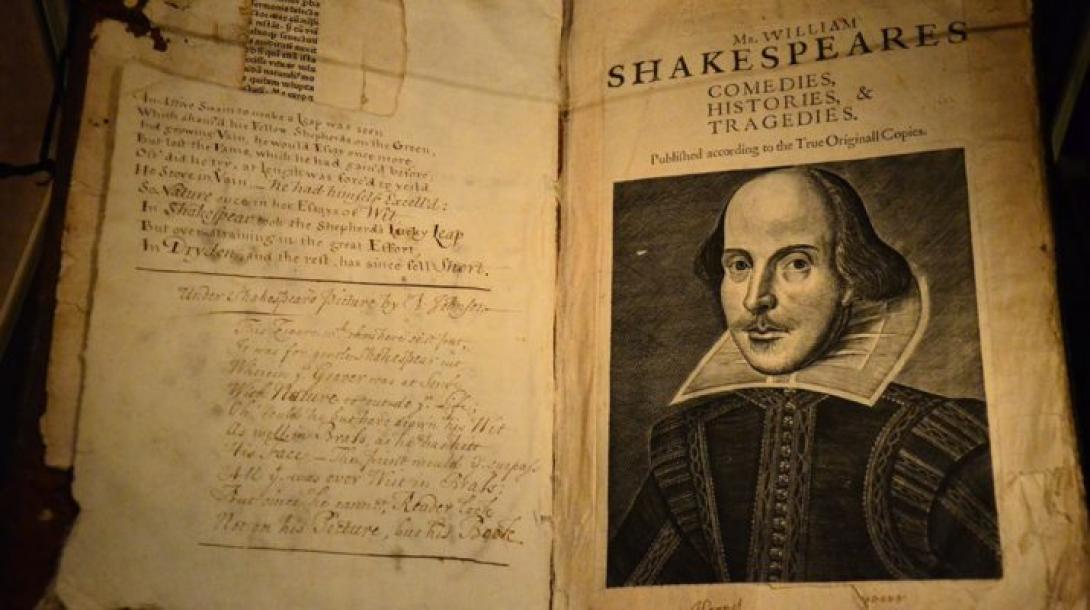 An Active Swain to make a Leap was seen
Which sham'd his Fellow Shepherds on the Green,
And growing Vain, he would Essay once more
But lost the Fame, which he had gain'd before;
Oft' did he try, at Length was forc'd to yeild
He Strove in Vain — he had himself Excell'd:
So Nature once in her Essays of Wit
In Shakespear took the Shepherd's Lucky Leap
But over-straining in the great Effort,
In Dryden, and the rest, has since fell Short.
Under Shakespears picture by Johnson
This Figure, wch thou here seest put,
It was for gentle Shakespear cut
Wherein ye Graver was at Strife
With Nature to outdo ye Life:
Oh' could he but have drawn his Wit
As well in Brass, as he has hitt
His Face — The print would surpass
All yt was ever Writ in Brass:
But since he cannot, Reader look
Not on his Picture, but his Book.
Mr. WILLIAM
SHAKESPEARES
COMEDIES,
HISTORIES, &
TRAGEDIES.
Published according to the True Originall Copies.